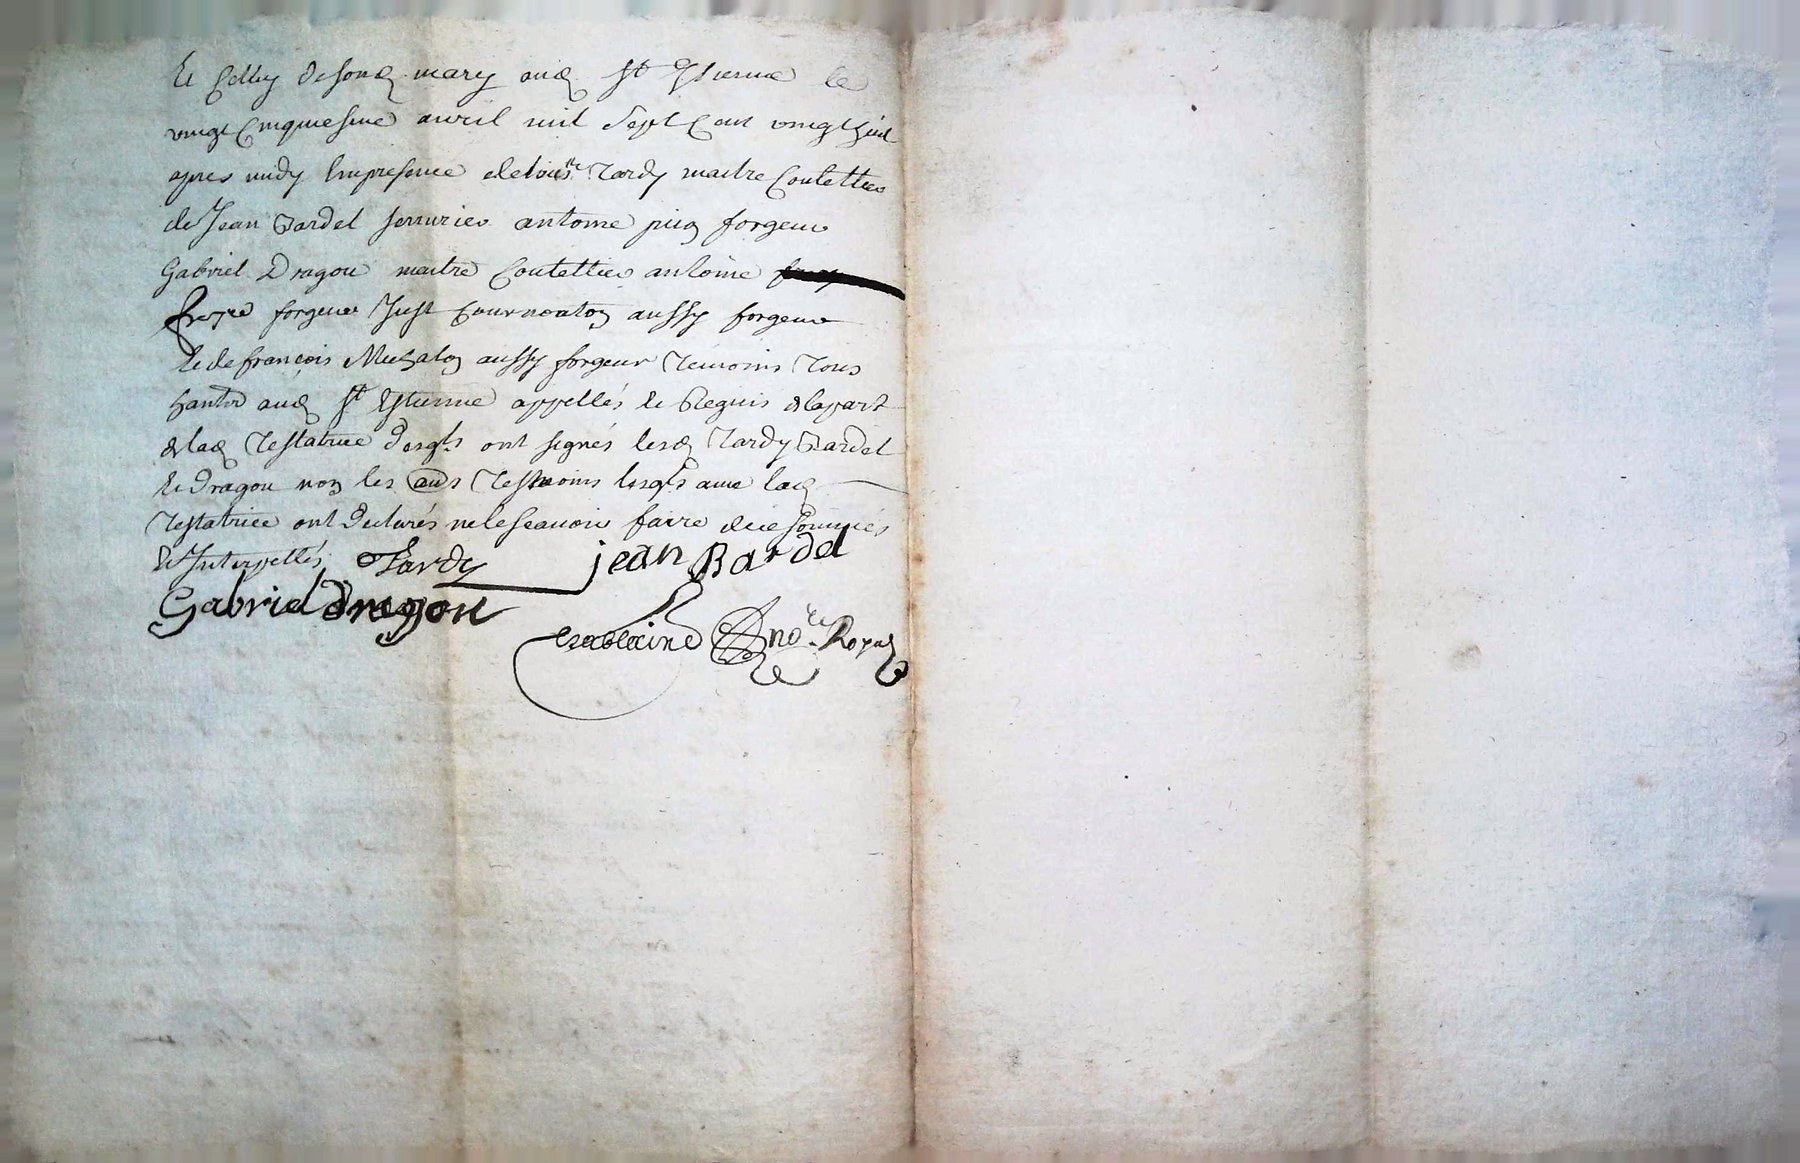 Et Celluy de sond mary aud St Estienne le
vingt Cinquiesme avril mil sept Cent vingt huit
apres midy En presence de Tardy maitre Coutellier
de Jean Bardel serrurier antoine forgeur
Gabriel Dragon maitre Coutellier antoine
forgeur Just aussy forgeur
Et de françois aussy forgeur Temoins Tous
aud St Estienne appellés Et Requis de la part
de lad Testatrice desqls ont signés lesd Tardy Bardel
Et Dragon non les aues Tesmoins lesqls avec lad
Testatrice ont declarés ne le sçauoir faire de ce sommés
Et Interpellés Tardy jean Bardel
Gabriel dragon
nore Royal